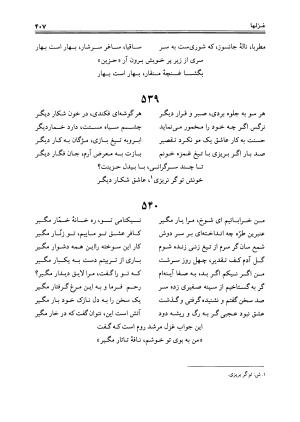 غزلها ۴۰۷
مطربا، نالهٔ جانسوز، که شوری‌ست به سر
ساقیا، ساغر سرشار، بهار است بهار
سری از زیر پر خویش برون آر «حزین»
بگشا غنچهٔ منقار، بهار است بهار
۵۳۹
هر سو به جلوه بردی، صبر و قرار دیگر
هر گوشه‌ای فکندی، در خون شکار دیگر
نرگس اگر چه خود را مخمور می‌نماید
چشم سیاه مستت، دارد خمار دیگر
حسنت به کار عاشق یک مو نکرد تقصیر
ابرو به تیغ بازی، مژگان به کار دیگر
صد بار اگر بریزی با تیغ غمزه خونم
بازت به معرض آرم، جان فگار دیگر
تا چند سرگرانی، با بیدل حزینت؟
خونش توگر نریزی۱، عاشق شکار دیگر
۵۴۰
من خراباتیم ای شوخ، مرا یار مگیر
نیکنامی تو، ره خانهٔ خمّار مگیر
عنبرین طرّه چه انداخته‌ای بر سر دوش
کافر عشق تو ماییم، تو زنّار مگیر
شمع سان گر سرم از تیغ زنی زنده شوم
کار این سوخته را این همه دشوار مگیر
گل آدم کف تقدیر، چهل روز سرشت
باری از تربیتم دست به یکبار مگیر
من اگر نیکم اگر بد، به صفا آینه‌ام
که تو را گفت، مرا لایق دیدار مگیر؟
گر به گستاخیم از سینه صفیری زده سر
رحم فرما و به این مرغ گرفتار مگیر
صد سخن گفتم و نشنیده گرفتی و گذشت
یک سخن را به دل نازک خود بار مگیر
عشق نبود عجبی گر به رگ و ریشه دود
آتش است این، نتوان گفت که در خار مگیر
این جواب غزل مرشد روم است که گفت
«من به بوی تو خوشم، نافهٔ تاتار مگیر»
۱. ش: توگر بریزی.